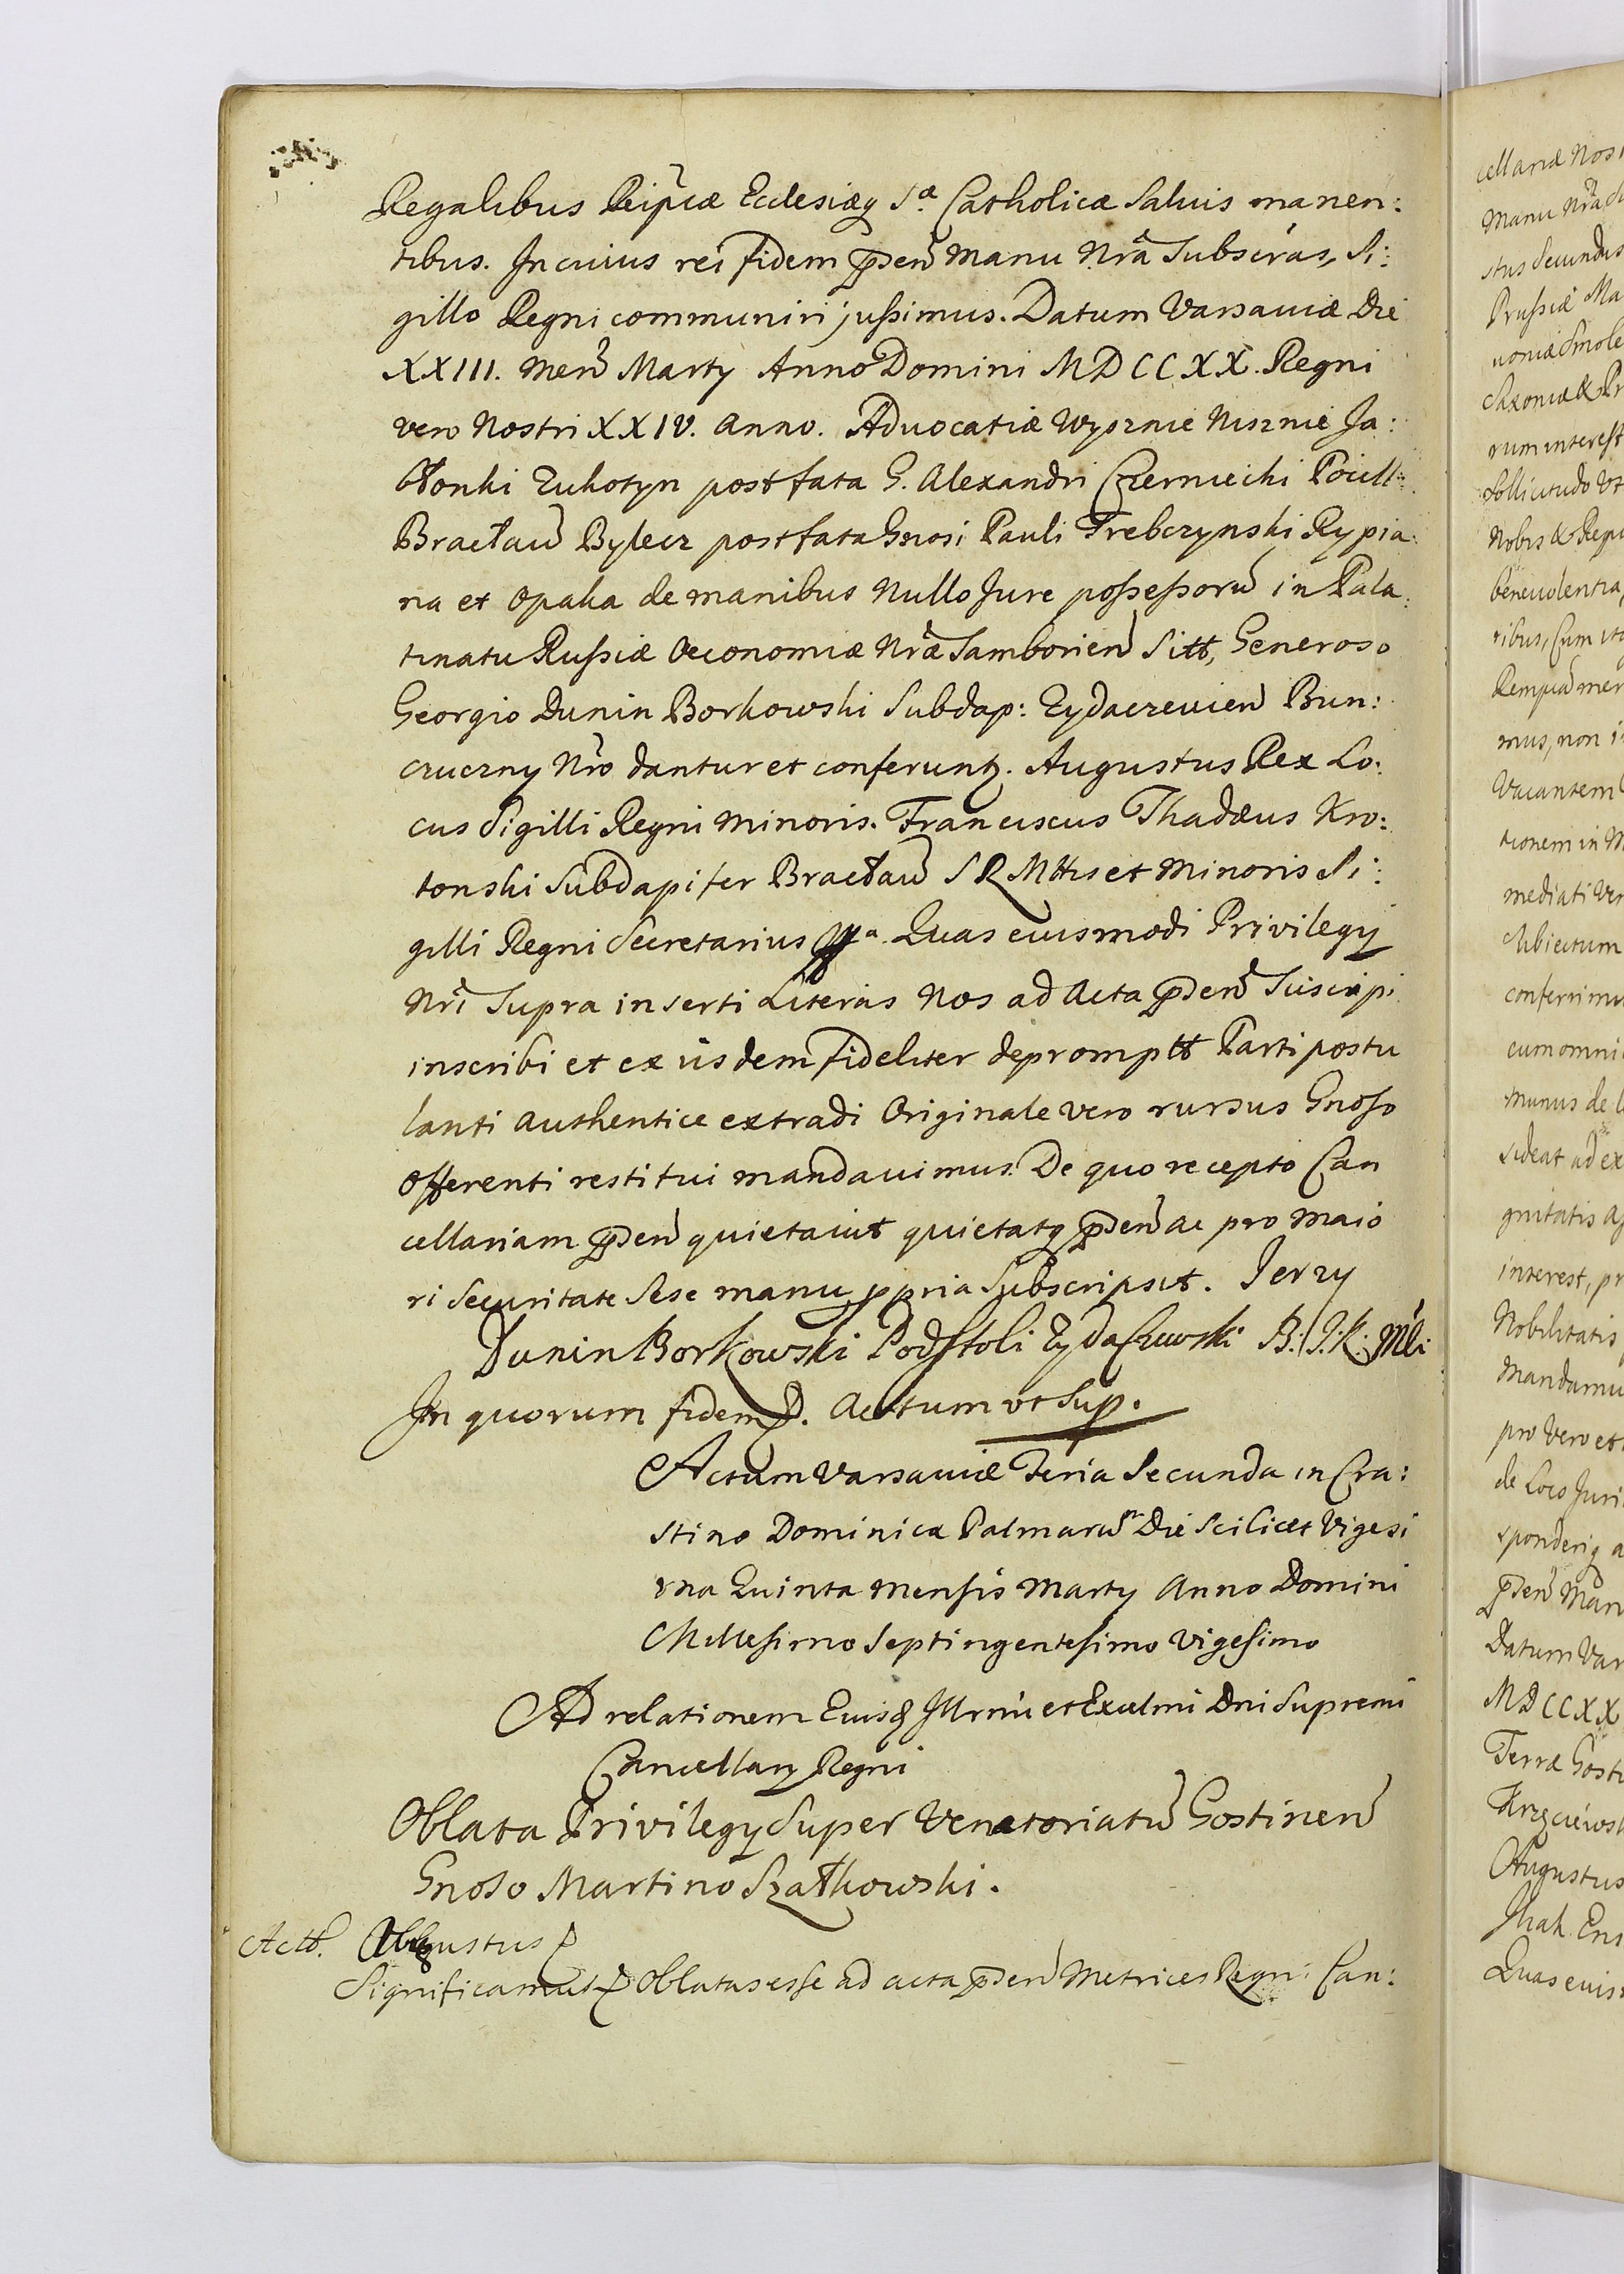 Regalibus Reipcæ Ecclesiæq Sæ Catholicæ Salvis manen:
tibus. In cuius rei fidem pden Manu Nra Subscras, Si:
gillo Regni communiri jußimus. Datum Varsaviæ Die
XXIII. Men Marty Anno Domini MDCCXX. Regni
vero Nostri XXIV. anno. Advocatiæ Wysznie Nisznie Ja:
błonki Zukotyn post fata G. Alexandri Czerniecki Pocill:
Bracław Bylicz post fata Gnosi Pauli Trebczynski Rypia
na et Opaka de manibus Nullo Jure poßeßorū in Pala
tinatu Rußiæ Oeconomiæ Nræ Samborien Sitt, Generoso
Georgio Dunin Borkowski Subdap: Zydaczevien Bun:
czuczny Nro dantur et conferuntq. Augustus Rex Lo:
cus Sigilli Regni Minoris. Franciscus Thadæus Kro:
tonski Subdapifer Bracław S R Mttis et Minoris Si:
gilli Regni Secretarius Quas eiusmodi Privilegy
Nri Supra inserti Literas Nos ad Acta pden Suscipi
inscribi et ex iisdem fideliter depromptt Parti postu
lanti authentice extradi Originale vero rursus Gnoso
Offerenti restitui mandavimus. De quo recepto Can
cellariam pden quietavit quietatq pden ac pro maio
ri Securitate Sese manu ppria Subscripsit. Jerzy
Dunin Borkowski Podstoli Zydaczewski B: J: K: Mci
In quorum fidem p. Actum vt Sup.
Actum Varsaviæ Feria Secunda in Cra:
stino Dominicæ Palmarū Die Scilicet Vigesi
ma Quinta Mensis Marty Anno Domini
Millesimo Septingentesimo Vigesimo
Ad relationem Eiusd Illrmi et Excelmi Dni Supremi
Cancellary Regni
Oblata Privilegy Super Venatoriatū Gostinen
Gnoso Martino Szatkowski.
Actt. Augustus p
Significamus p Oblatas esse ad acta pden Metrices Regni Can:
cellariæ Nos
Manu Nra Su
stus Secundus
Prußiæ Ma
voniæ Smole
Saxoniæ & Pr
rum interest
Sollicitudo Vt
Nobis & Repu
benevolentia,
ribus, Cum ita
Rempcā mer
mus, non i
Vacantem
tionem in M
mediati Ven
Subiectum
conferrimus
cum omni
munus de
sideat ad ex
gnitatis a
interest, pr
Nobilitatis
Mandamu
pro Vero et
de Loco Juri
sponderiq a
pden Man
Datum Var
MDCCXX
Terræ Gosti
Augustus
Quas eius